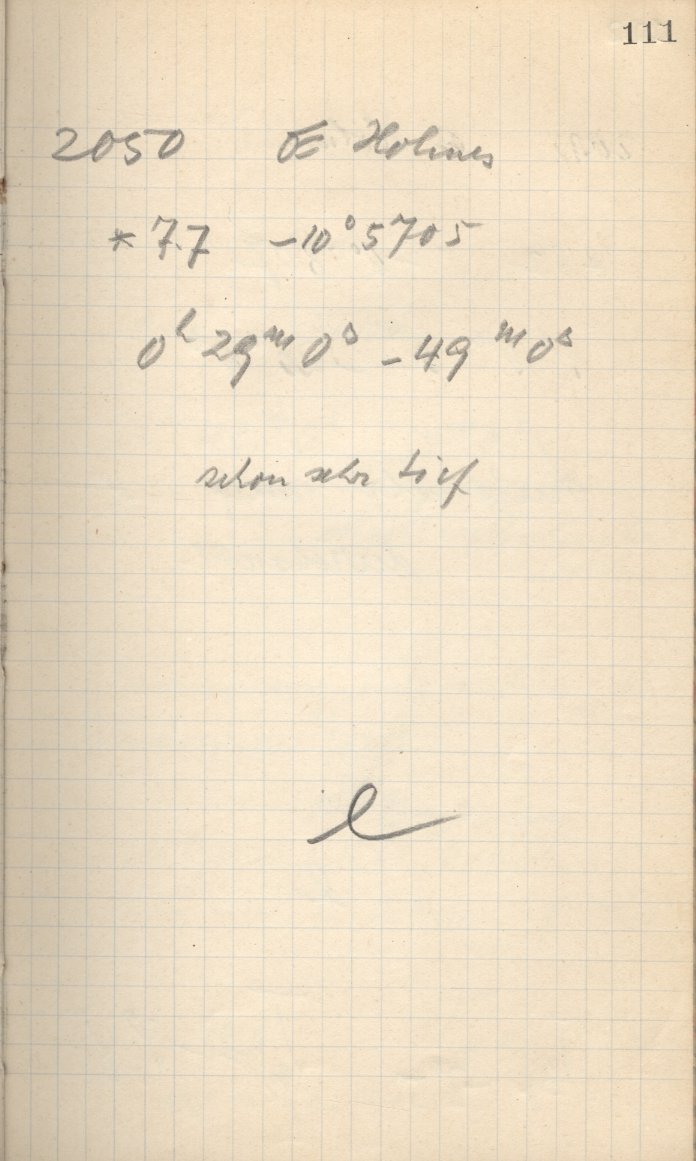 111
2050 Œ Holmes
* 7.7 -10°5705
0h 29m 0s - 49m 0s
schon sehr tief
e